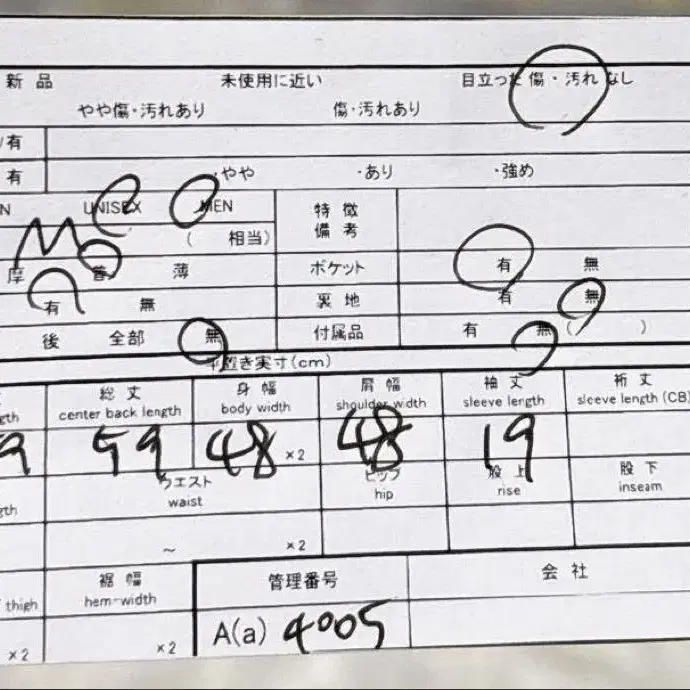 新品 未使用に近い 目立った傷・汚れなし
やや傷・汚れあり 傷・汚れあり
/有
有 ・やや ・あり ・強め
N UNISEX MEN 特徴
備考
M ( 相当)
厚 普 薄 ポケット 有 無
有 無 裏地 有 無
後 全部 無 付属品 有 無 ( )
平置き実寸(cm)
総丈 身幅 肩幅 袖丈 裄丈
gth center back length body width shoulder width sleeve length sleeve length (CB)
9 59 48 ×2 48 19
ウエスト ヒップ 股上 股下
gth waist hip rise inseam
~ ×2
裾幅 管理番号 会社
thigh hem-width
×2 ×2 A(a) 4005